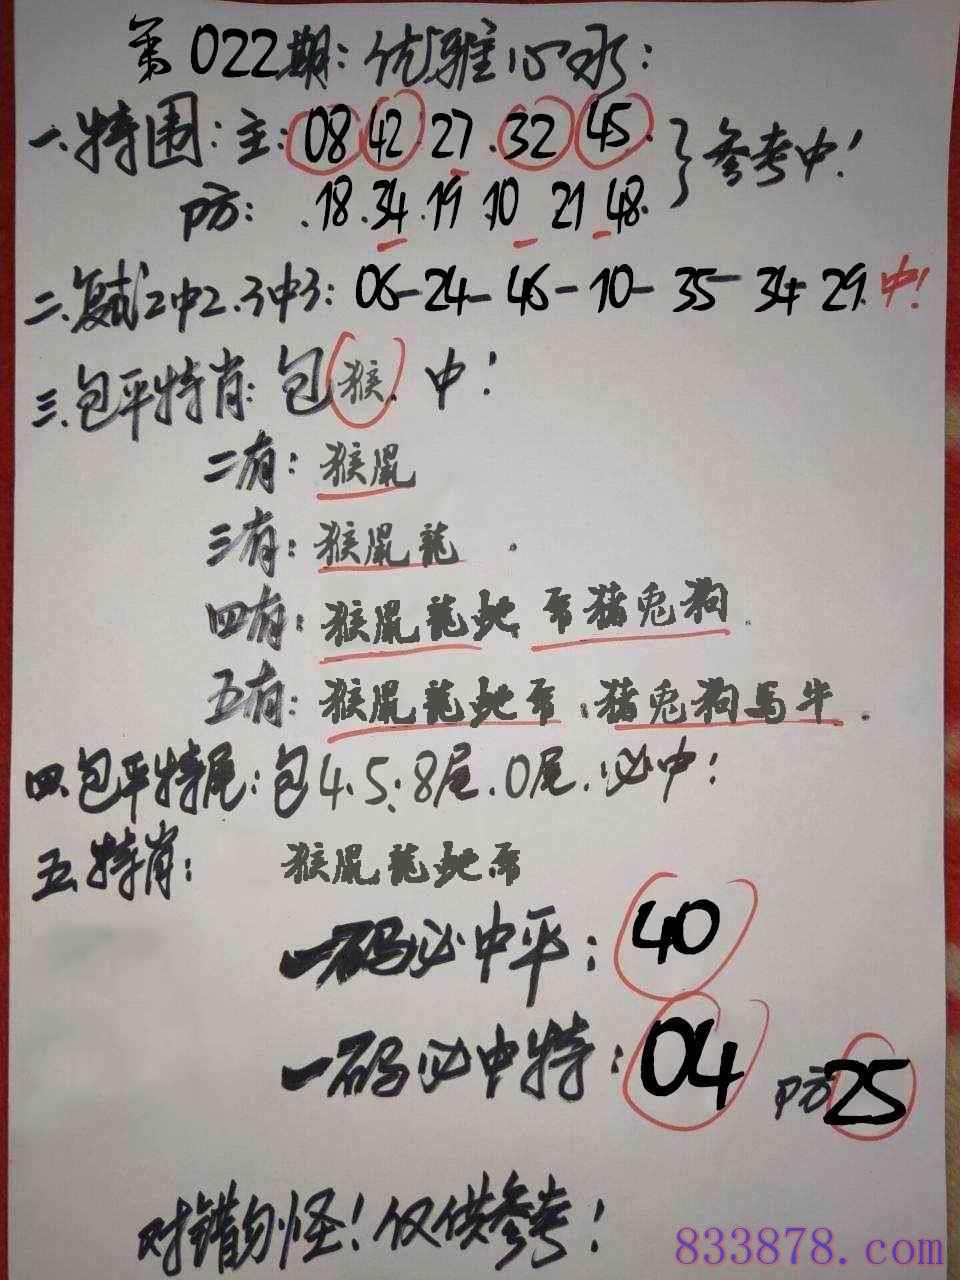 第022期：优雅心水：
一.特围：主：08 42 27.32 45.
防：.18.34.19 10 21 48.
参考中！
二.复式2中2.3中3：06-24-46-10-35-34-29.中！
三.包平特肖：包猴.中！
二有：猴鼠
三有：猴鼠龍.
四有：猴鼠龍蛇.虎猪兎狗.
五有：猴鼠龍蛇虎.猪兎狗馬牛.
四.包平特尾：包4.5.8尾.0尾.必中！
五.特肖：猴鼠龍蛇虎
一码必中平：40
一码必中特：04 防25
对错勿怪！仅供参考！
833878.com